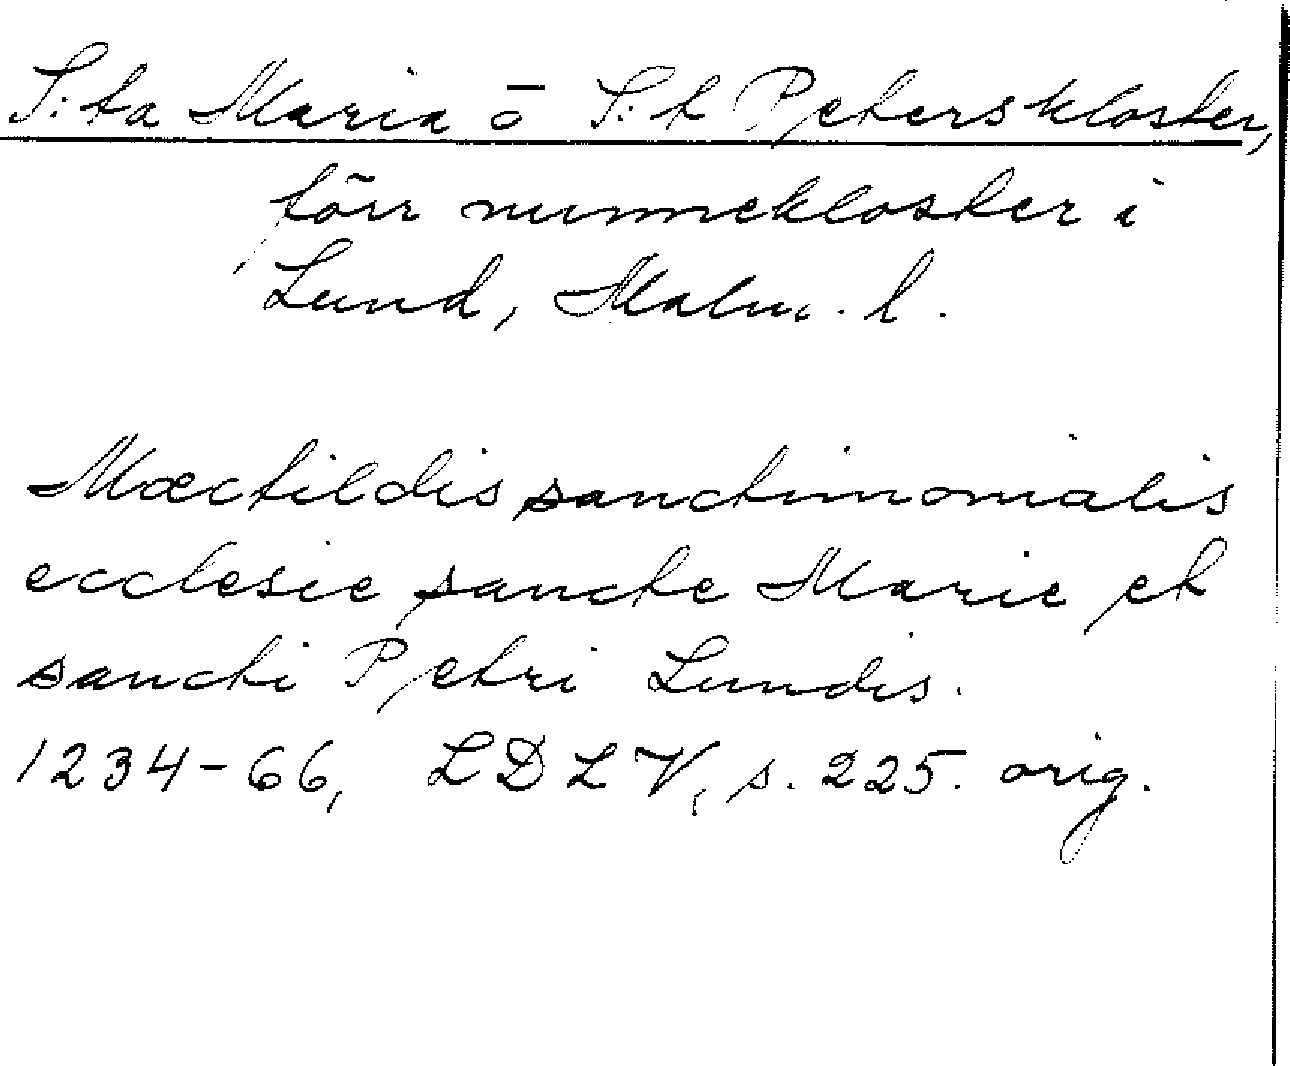 S:ta Maria o S:t Peters kloster,
förr nunnekloster i
Lund, Malm. l.
Mæctildis sanctimonialis
ecclesie sancte Marie et
sancti Petri Lundis.
1234-66, LDLV, s. 225. orig.